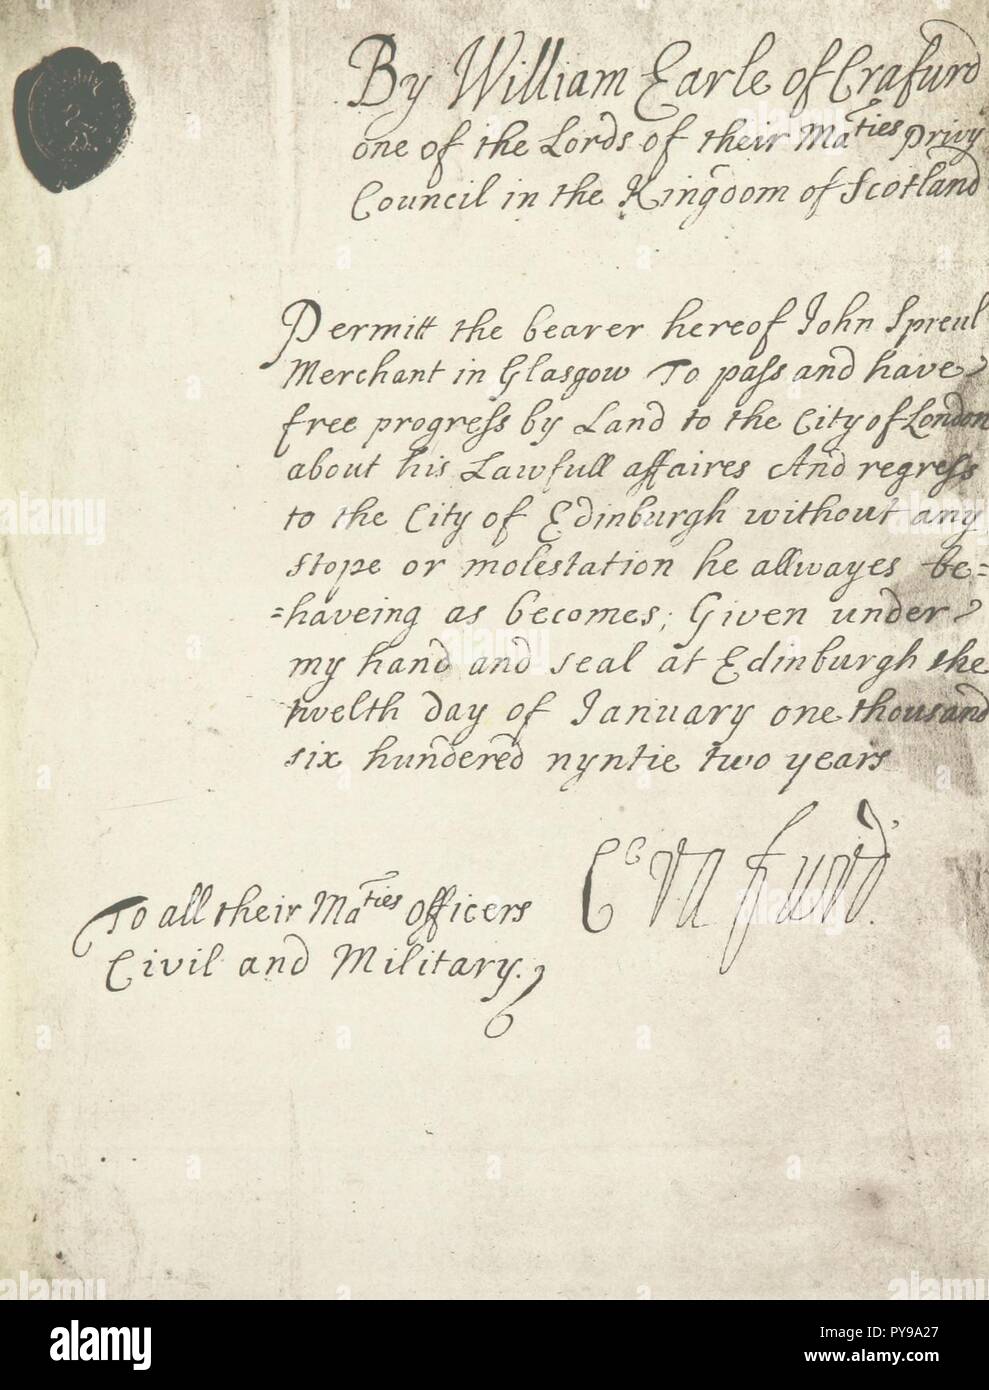 By William Earle of Crafurd
one of the Lords of their Maties Privy
Council in the Kingdom of Scotland
Permitt the bearer hereof John Spreul
Merchant in Glasgow To pass and have
free progress by Land to the City of London
about his Lawfull affaires And regress
to the City of Edinburgh without any
stope or molestation he allwayes be=
=haveing as becomes; Given under
my hand and seal at Edinburgh the
twelth day of January one thousand
six hundered nyntie two years
Crafurd.
To all their Maties officers
Civil and Military.
alamy
Image ID: PY9A27
www.alamy.com